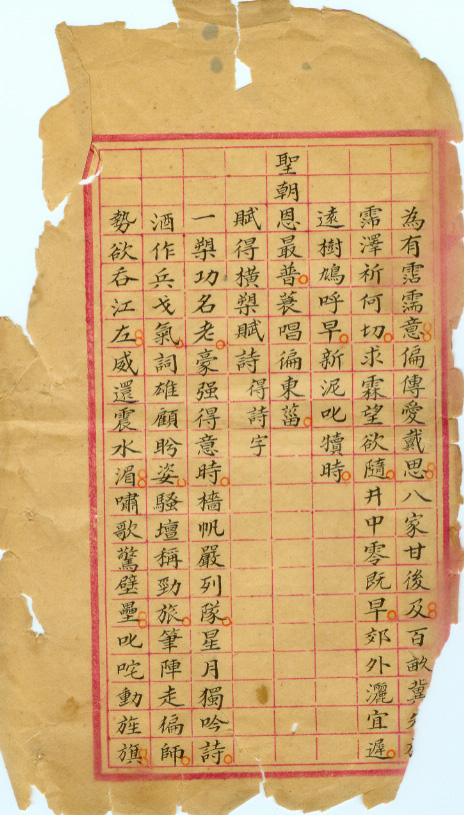 為有霑濡意偏傳愛戴思八家甘後及百畝冀
霈澤祈何切求霖望欲隨井中零既早郊外灑宜遲
遠樹鳩呼早新泥叱犢時
聖朝恩最普蓑唱徧東菑
賦得橫槊賦詩 得詩字
一槊功名老豪强得意時檣帆嚴列隊星月獨吟詩
酒作兵戈氣詞雄顧盼姿騷壇稱勁旅筆陣走偏師
勢欲吞江左威還震水湄嘯歌驚壁壘叱咤動旌旗